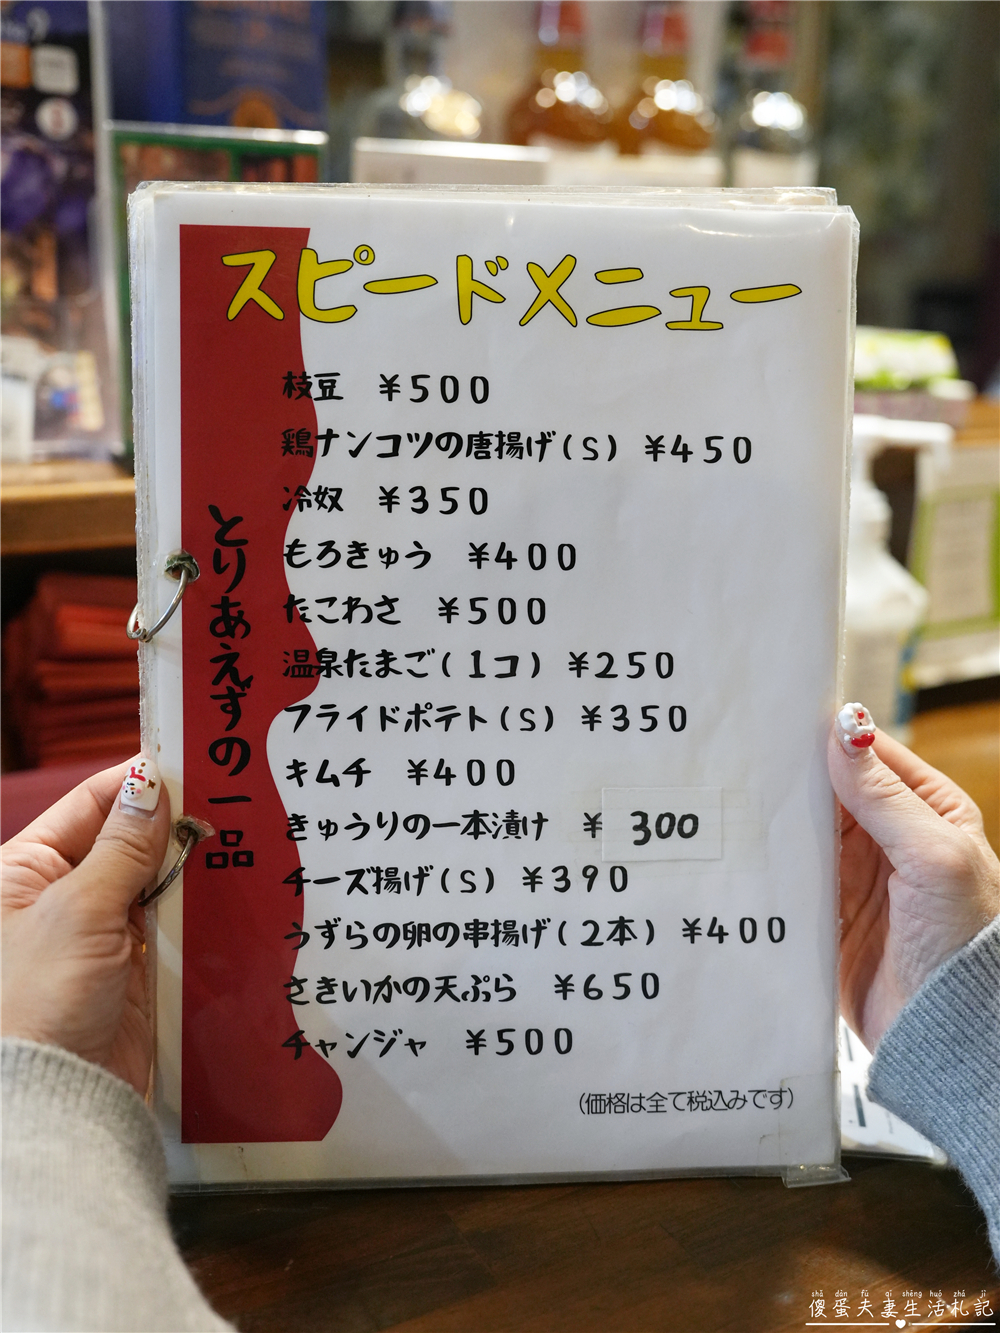 スピードメニュー
とりあえずの一品
枝豆 ¥500
鶏ナンコツの唐揚げ(S) ¥450
冷奴 ¥350
もろきゅう ¥400
たこわさ ¥500
温泉たまご(1コ) ¥250
フライドポテト(S) ¥350
キムチ ¥400
きゅうりの一本漬け ¥300
チーズ揚げ(S) ¥390
うずらの卵の串揚げ(2本) ¥400
さきいかの天ぷら ¥650
チャンジャ ¥500
(価格は全て税込みです)
shǎ dàn fū qī shēng huó zhá jì
傻蛋夫妻生活札記